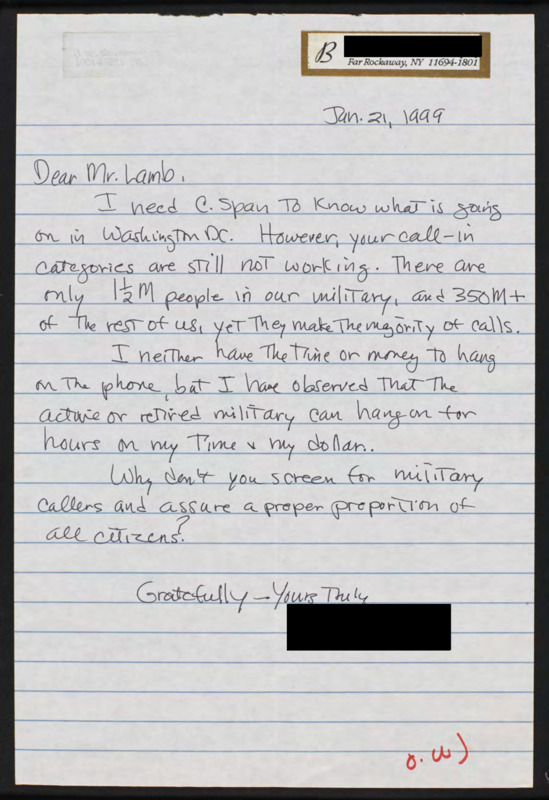 B
Far Rockaway, NY 11694-1801
Jan. 21, 1999
Dear Mr. Lamb,
I need C. Span To Know what is going
on in Washington DC. However, your call-in
categories are still not working. There are
only 1½M people in our military, and 350M+
of The rest of us, yet They make The majority of calls.
I neither have The Time or money to hang
on The phone, but I have observed That The
active or retired military can hang on for
hours on my Time & my dollar..
Why don't you screen for military
callers and assure a proper proportion of
all citizens?
Gratefully — Yours Truly
o.w)